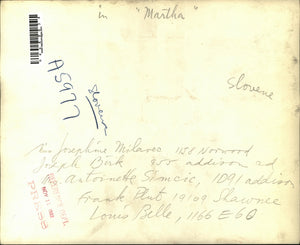 in "Martha"
A5977
Slovene
Slovene
Josephine Milavec 1154 Norwood
Joseph Birk 900 addison rd
Antoinette Simcic, 1091 addison
Frank Plut 19109 Shawnee
Louis Belle, 1166 E 60